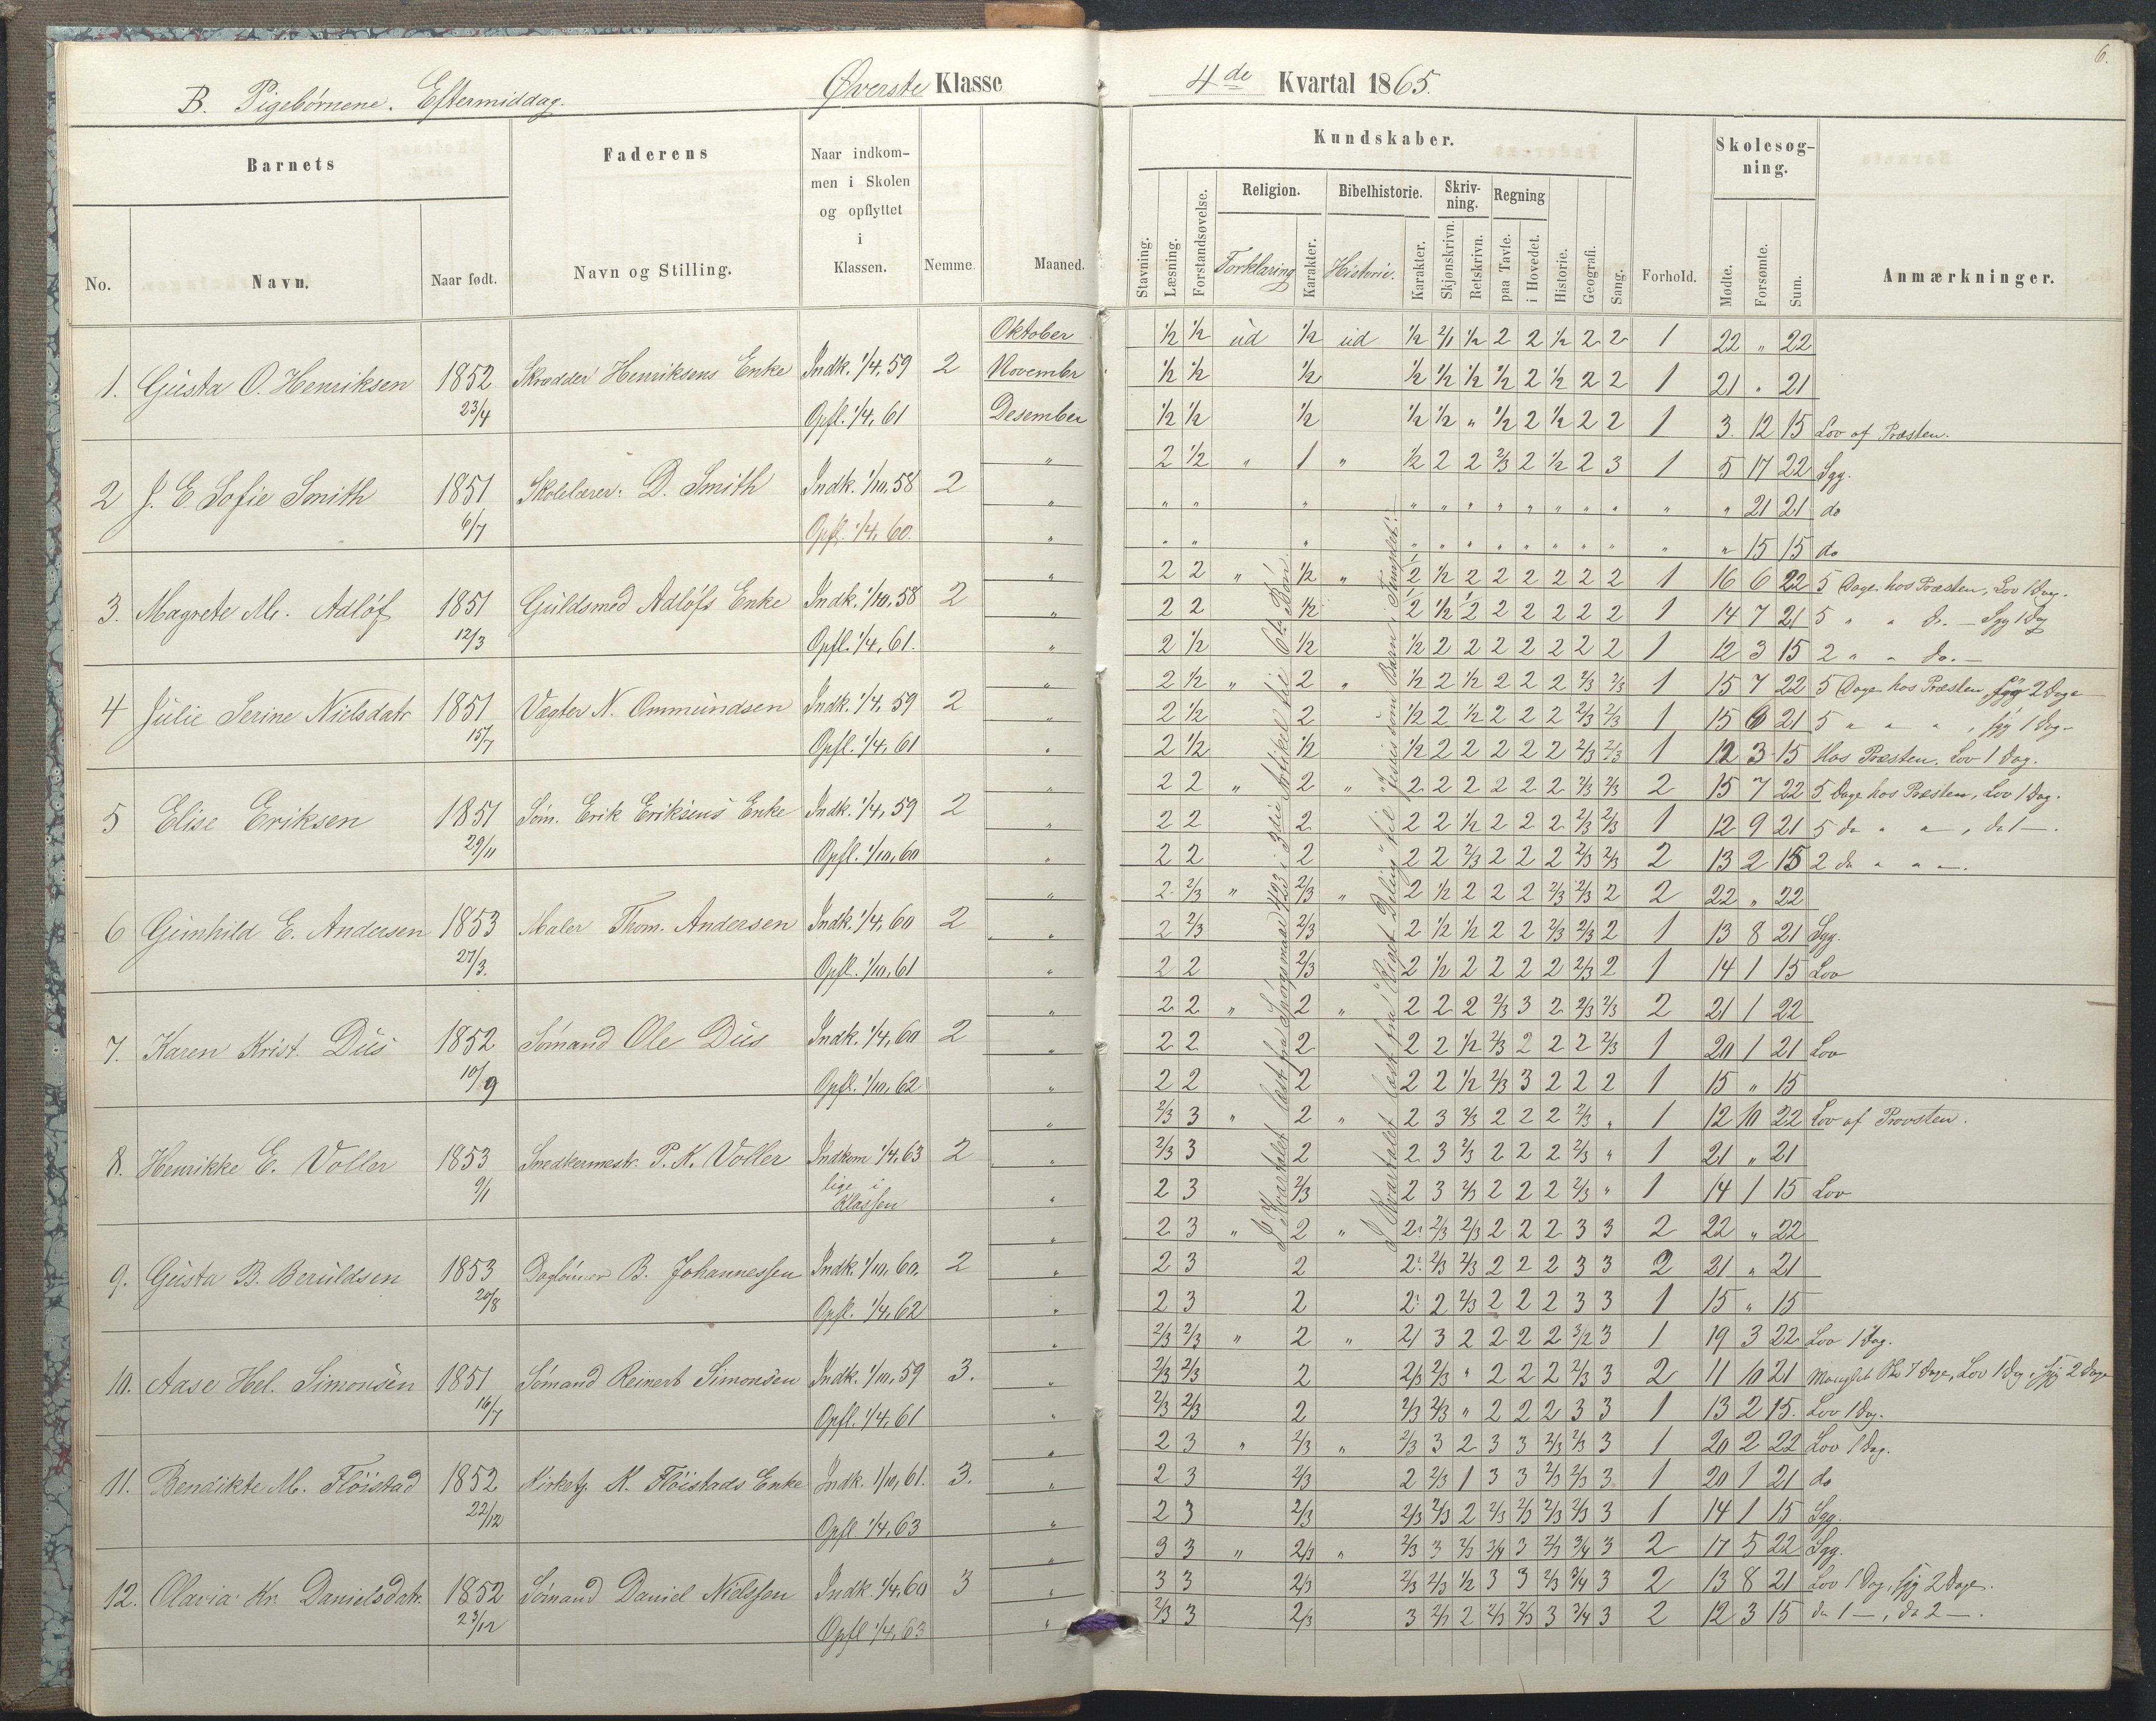 6.
B. Pigebørnene. Eftermiddag. Øverste Klasse 4de Kvartal 1865.
Barnets
Faderens
Naar indkom-
men i Skolen
og opflyttet
i
Klassen.
Kundskaber.
Skolesøg-
ning.
Religion. Bibelhistorie. Skriv-
ning. Regning
No. Navn. Naar født. Navn og Stilling. Nemme Maaned. Stavning. Læsning. Forstandsøvelse. Forklaring Karakter. Historie. Karakter. Skjønskrivn. Retskrivn. paa Tavle. i Hovedet. Historie. Geografi. Sang. Forhold. Mødte. Forsømte. Sum. Anmærkninger.
Oktober 1/2 1/2 ud 1/2 ud 1/2 2/1 1/2 2 2 1/2 2 2 1 22 " 22
1. Gusta O. Henriksen 1852 Skrædder Henriksens Enke Indk. 1/4, 59 2 November 1/2 1/2 1/2 1/2 1/2 1/2 1/2 2 1/2 2 2 1 21 " 21
23/4 Opfl. 1/4, 61 Desember 1/2 1/2 1/2 1/2 1/2 " 1/2 2 1/2 2 2 1 3 12 15 Lov af Præsten.
" 2 1/2 " 1 " 1/2 2 2 2/3 2 1/2 2 3 1 5 17 22 Syg.
2 J. E. Sofie Smith 1851 Skolelærer D. Smith Indk. 1/10, 58 2 " " " " " " " " " " " " " " " 21 21 do
6/7 Opfl. 1/4, 60. " " " " " " " " " " " " " " " 15 15 do
" 2 2 " 1/2 " 1/2 1/2 2 2 2 2 2 2 1 16 6 22 5 Dage hos Præsten, Lov 1 Dag.
3. Magrete M. Adløf 1851 Guldsmed Adløfs Enke Indk. 1/10, 58 2 " 2 2 1/2 1/2 1/2 1/2 2 2 2 2 2 1 14 7 21 5 " " do. - Syg 1 Dag
12/3 Opfl. 1/4, 61. " 2 1/2 1/2 1/2 2 2 2 2 2 2 2 1 12 3 15 2 " " do. -
" 2 1/2 " 2 " 1/2 2 1/2 2 2 2 2/3 2/3 1 15 7 22 5 Dage hos Præsten, syg 2 Dage
4 Julie Serine Nielsdatr 1851 Vægter N. Ommundsen Indk. 1/4, 59 2 " 2 1/2 2 1/2 2 1/2 2 2 2 2/3 2/3 1 15 6 21 5 " " " , syg 1 Dag
15/7 Opfl. 1/4, 61 " 2 1/2 1/2 1/2 2 2 2 2 2 2/3 2/3 1 12 3 15 Hos Præsten. Lov 1 Dag.
" 2 2 " 2 " 2 2 2 2 2 2 2/3 2/3 2 15 7 22 5 Dage hos Præsten, Lov 1 Dag.
5 Elise Eriksen 1851 Søm. Erik Eriksens Enke Indk. 1/4, 59 2 " 2 2 2 2 2 1/2 2 2 2 2/3 2/3 1 12 9 21 5 do " " , do 1 -.
29/11 Opfl. 1/10, 60 " 2 2 2 2 2 2/3 2 2 2 2/3 2/3 2 13 2 15 2 do " " -.
" 2 2/3 " 2/3 " 2 1/2 2 2 2 2/3 2/3 2 2 22 " 22
6 Gunhild E. Andersen 1853 Maler Thom. Andersen Indk. 1/4, 60 2 " 2 2/3 2/3 2 1/2 1/2 2 2 2/3 2/3 2 1 13 8 21 Syg.
27/3. Opfl. 1/10, 61 " 2 2 2/3 2 1/2 2 2 2 2 2/3 2 1 14 1 15 Lov
" 2 2 " 2 " 2 2 2 2/3 3 2 2/3 2/3 2 21 1 22
7. Karen Krist. Dus 1852 Sømand Ole Dus Indk. 1/4, 60 2 " 2 2 2 2 2 1/2 2/3 2 2 2 2/3 1 20 1 21 Lov
10/9 Opfl. 1/10, 62 " 2 2 2 2 2 1/2 2/3 3 2 2 2 1 15 " 15
" 2/3 3 " 2 " 2 3 2/3 2 2 2 2/3 " 1 12 10 22 Lov af Provsten.
8. Henrikke E. Voller 1853 Snedkermestr. P. K. Voller Indkom 1/4, 63 2 " 2/3 3 2 2 3 2/3 2 2 2 2/3 " 1 21 " 21
9/1 lige i
Klassen " 2 3 2/3 2 3 2/3 2 2 2 2/3 " 1 14 1 15 Lov
" 2 3 " 2 " 2 2/3 2/3 2 2 2 3 3 2 22 " 22
9. Gusta B. Beruldsen 1853 Daglønner B. Johannessen Indk. 1/10, 60. 2 " 2 3 2 2 2/3 2/3 2 2 2 3 3 2 21 " 21
20/8 Opfl. 1/4, 62 " 2 3 2 2 2 2/3 2 2 2 3 3 1 15 " 15
" 2/3 2/3 " 2 " 2/1 3 2 2 2 2 3/2 3 1 19 3 22 Lov 1 Dag.
10. Aase Hel. Simonsen 1851 Sømand Reinert Simonsen Indk. 1/10, 59 3. " 2/3 2/3 2 2/3 2/3 " 2 2 2 2/3 3 2 11 10 21 Manglet Sko 7 Dage, Lov 1 Dag, syg 2 Dage
16/7 Opfl. 1/4, 61 " 2/3 2/3 2 2/3 2/3 " 2 2 2 3 3 1 13 2 15. Lov 1 Dag.
" 2 3 " 2/3 " 2/3 3 2 3 3 2/3 2/3 3 1 20 2 22 Lov 1 Dag.
11. Bendikte M. Fløistad 1852 Kirketj. K. Fløistads Enke Indk. 1/10, 61. 3. " 2 3 2/3 2 2/3 1 3 3 2/3 2/3 3 1 20 1 21 do
22/12 Opfl. 1/4, 63 " 2 3 2/3 2/3 2/3 2 2/3 2/3 2/3 2/3 3 1 14 1 15 Syg.
" 3 3 " 2/3 " 2/3 3 2/3 3/4 3 2/3 3/4 3 2 17 5 22 Syg.
12. Olavia Kr. Danielsdatr. 1852 Sømand Daniel Nielsen Indk. 1/4, 60 3 " 3 3 2/3 2/3 2/3 1/2 3 3 2/3 3/4 3 2 13 8 21 Lov 1 Dag, syg 2 Dage.
23/12 Opfl 1/4, 63 " 2/3 3 2/3 3 2/3 2 2/3 2/3 3 3/4 3 2 12 3 15 do 1 -, do 2 -.
I Kvartalet læst fra Spørgsmaal i 3die Artikel til 6te Bøn.
I Kvartalet læst fra "Riget Deling" til "Jesus som Barn i Templet".